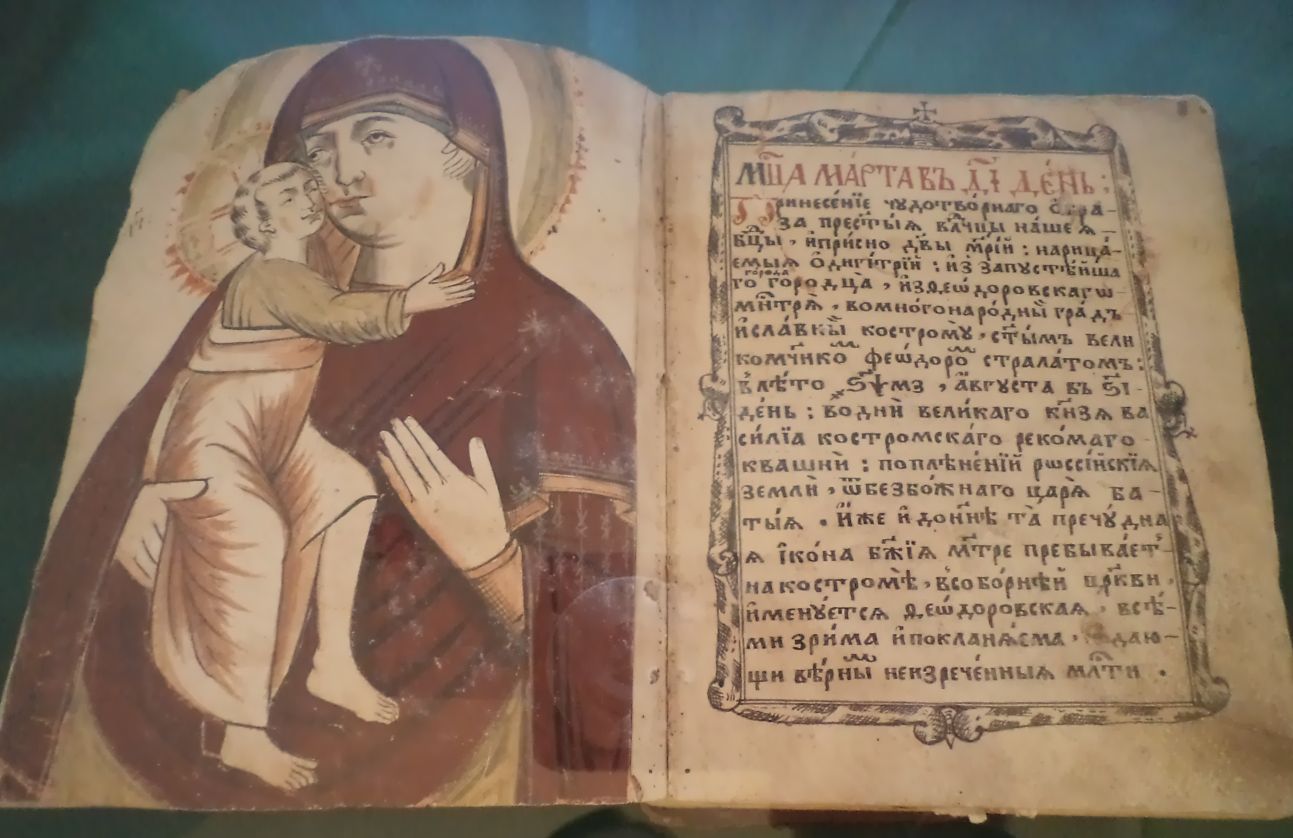 мц҃а ма́рта въ д҃і де́нь :
Принесе́нїе чудотво́рнаго о҆́бра-
за прест҃ы́я влⷣчцы на́шея
бц҃ы , и҆ при́сно дв҃ы мр҃і́й : нарица́-
емыя ѻ҆диги́трїй : и҆з̾ запустѣ́йша
го города горо́дца̀ , и҆з̾ ѳео́дոровскагѡ
мн҃тря̀ , во мно́гонаро́дны̏ гра́дъ
и҆ сла́вны̏ костро́му , ст҃ы́мъ вели
комч҃нико́ᷟ феѡ́доро́ᷟ стралато́мъ :
в̾ лѣ́то ҂ѕ҃ѱмз , а҆́вгуста въ ѕ҃і-
де́нь : во дни̏ вели́каго кн҃зя ва
си́лїа костромска́го реко́маго
квашни̏ : поплѣне́нїй рѡссі́йскїя
земли̏ , ѿ безбо́жнаго царя̀ ба-
ты́я . и҆́же и҆ до ны́нѣ та̀ пречу́дна
я і҆ко́на бж҃їя мт҃ре пребыва́етъ
на костромѣ̀ , в̾ собо́рнѣй цр҃кви ,
и҆мену́ется ѳео́доровская , всѣ́-
ми зри́ма и҆ покланя́ема , подаю-
щи вѣ́рны́ᷟ неизрече́нныя мл҃ти .